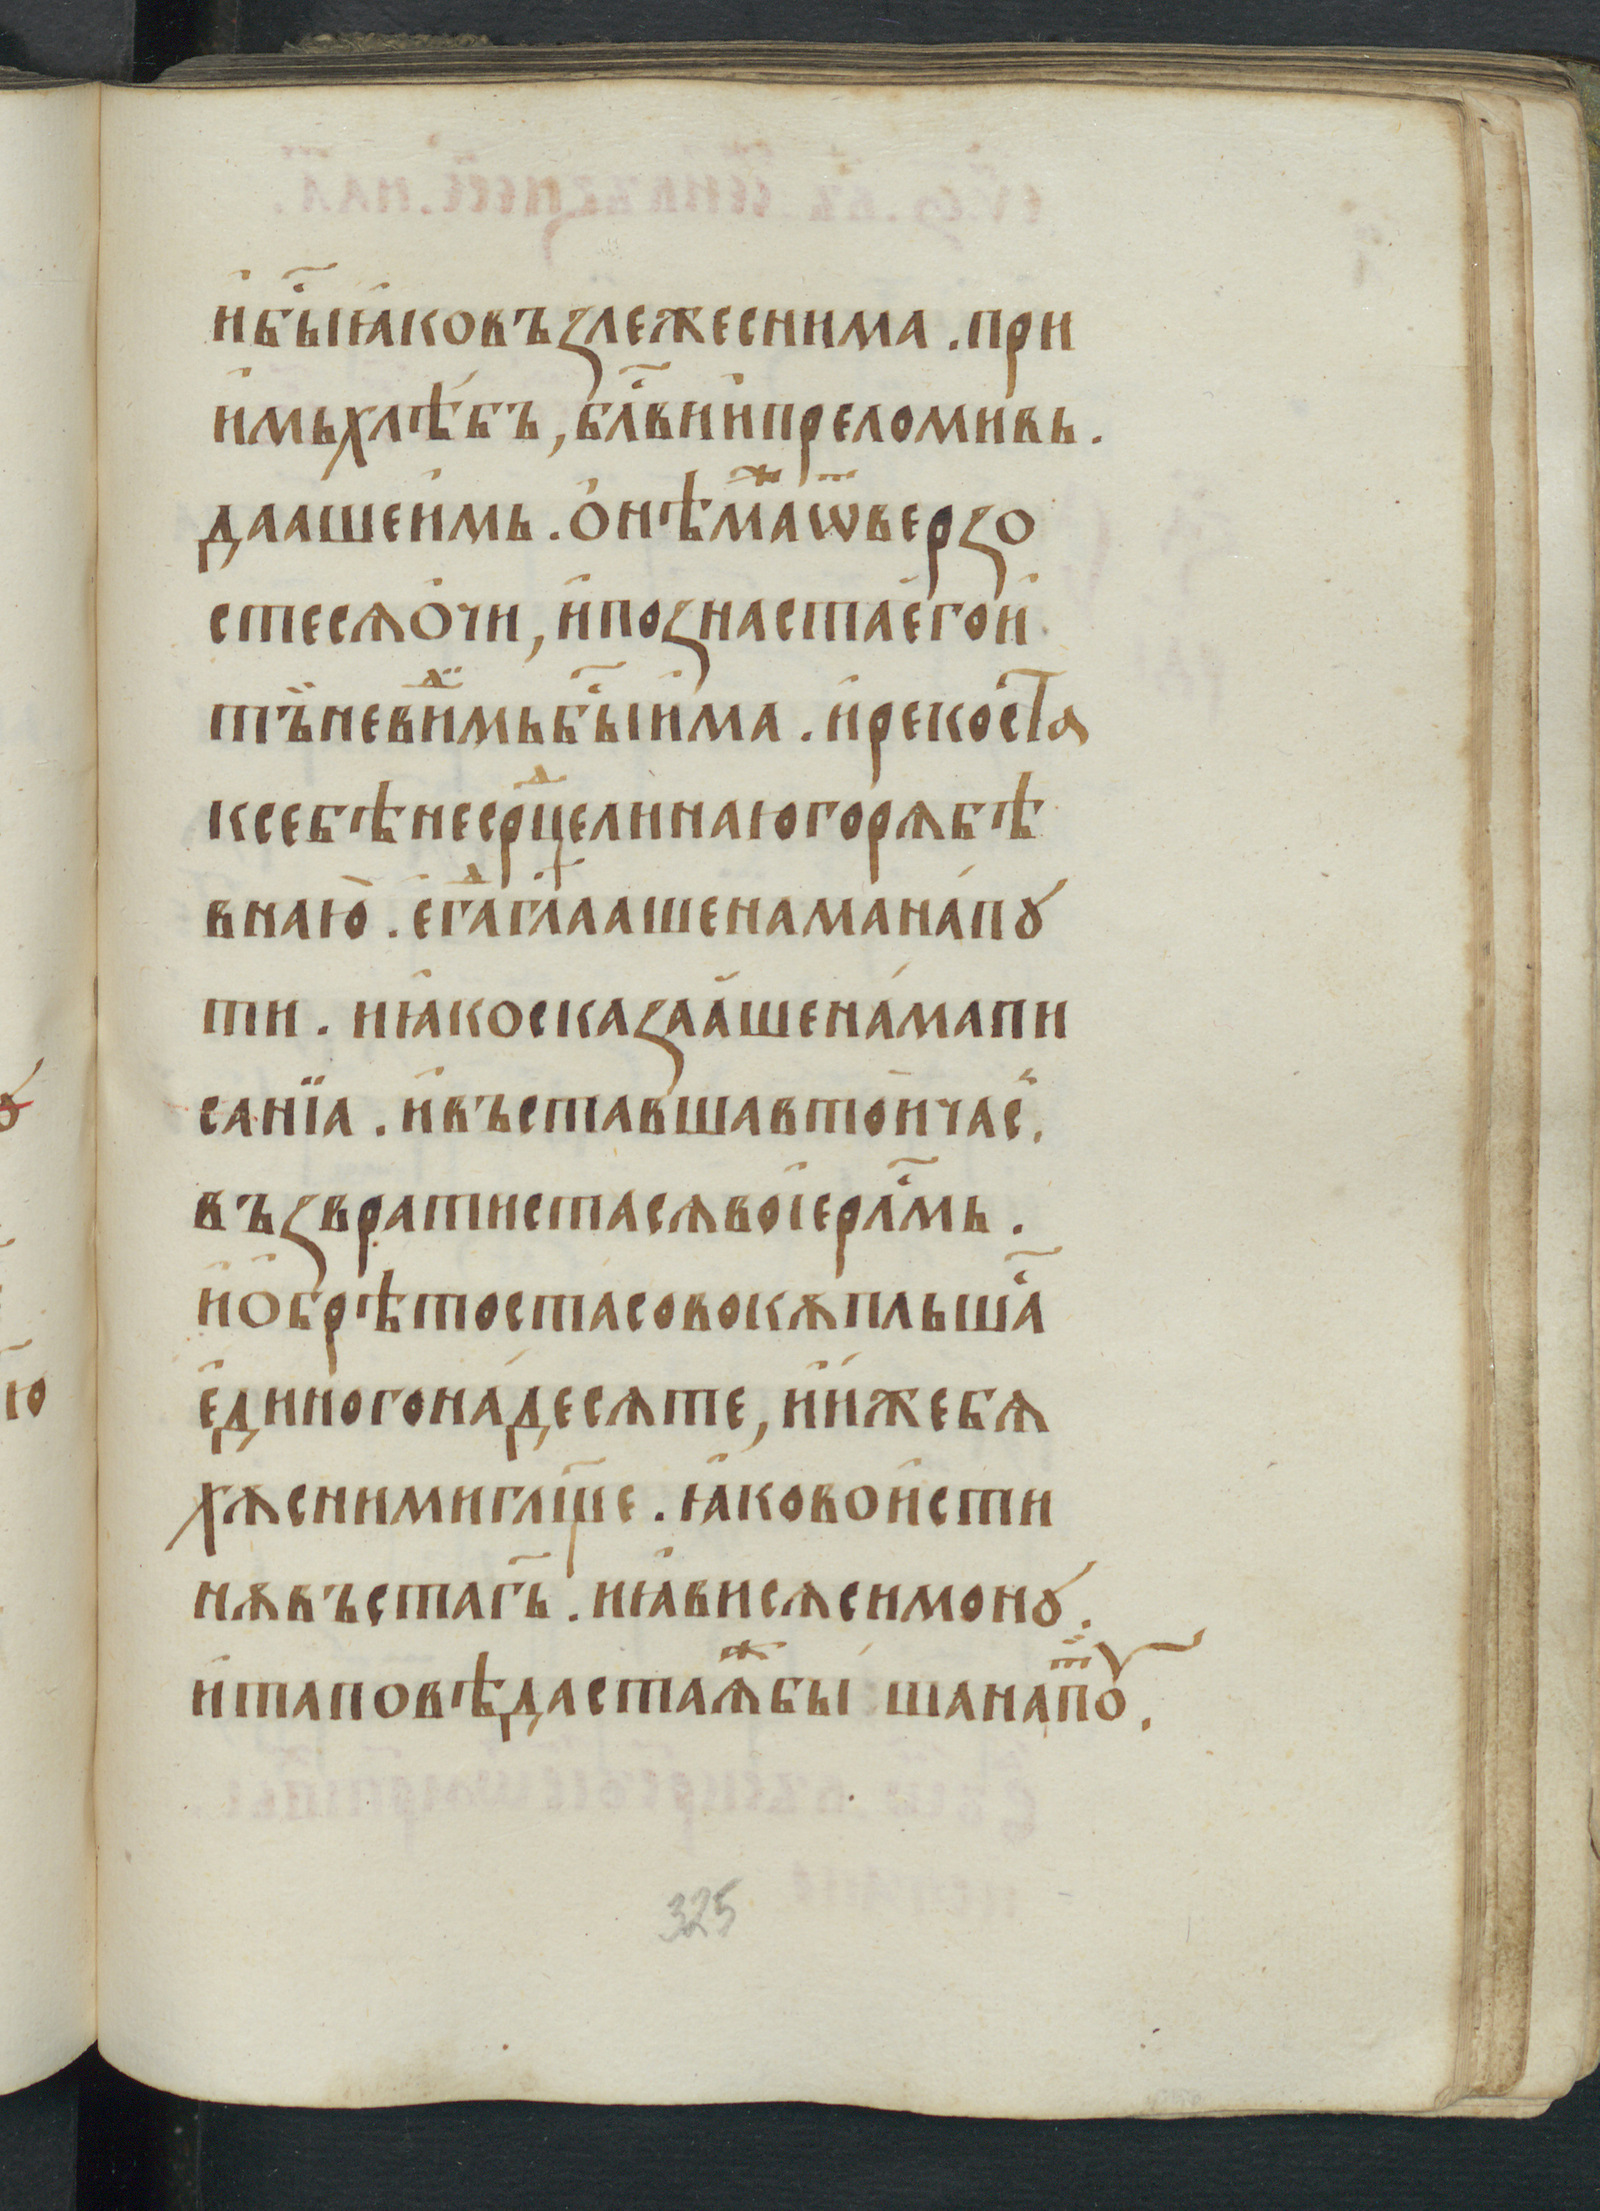 и҆бы҃ꙗ҆ковъꙁлежеснима . при
и҆мьхлѣ́бъ , бл҃вии҆преломивь .
даашеи҆мь . о҆нѣмⷤаѿверꙁо
стесѧо҆чи , и҆поꙁнастае҆гои҆
тъ̈невиⷣмьбы҃и҆ма . и҆рекостⷶѧ
ксебѣнесрⷣцелинаюгорѧбѣ
внаю̀ . е҆гⷣагл҃аашенаманапꙋ
ти . иꙗ҆косказаа҆шена́мапи
санїа . и҆въставшавто́ичас .
въꙁвратистасѧвоі҆ерл҃мь .
и҆о҆брѣтостасовокѫпльша҃
е҆диногона́десѧте , и҆и҆жебѧ
хѫснимигл҃ще . ꙗ҆ковои҆сти
нѫвъстагь҃ . иꙗ҆висѧсимонꙋ .
и҆таповѣдастаꙗⷤбы шанапⷮоу .
325